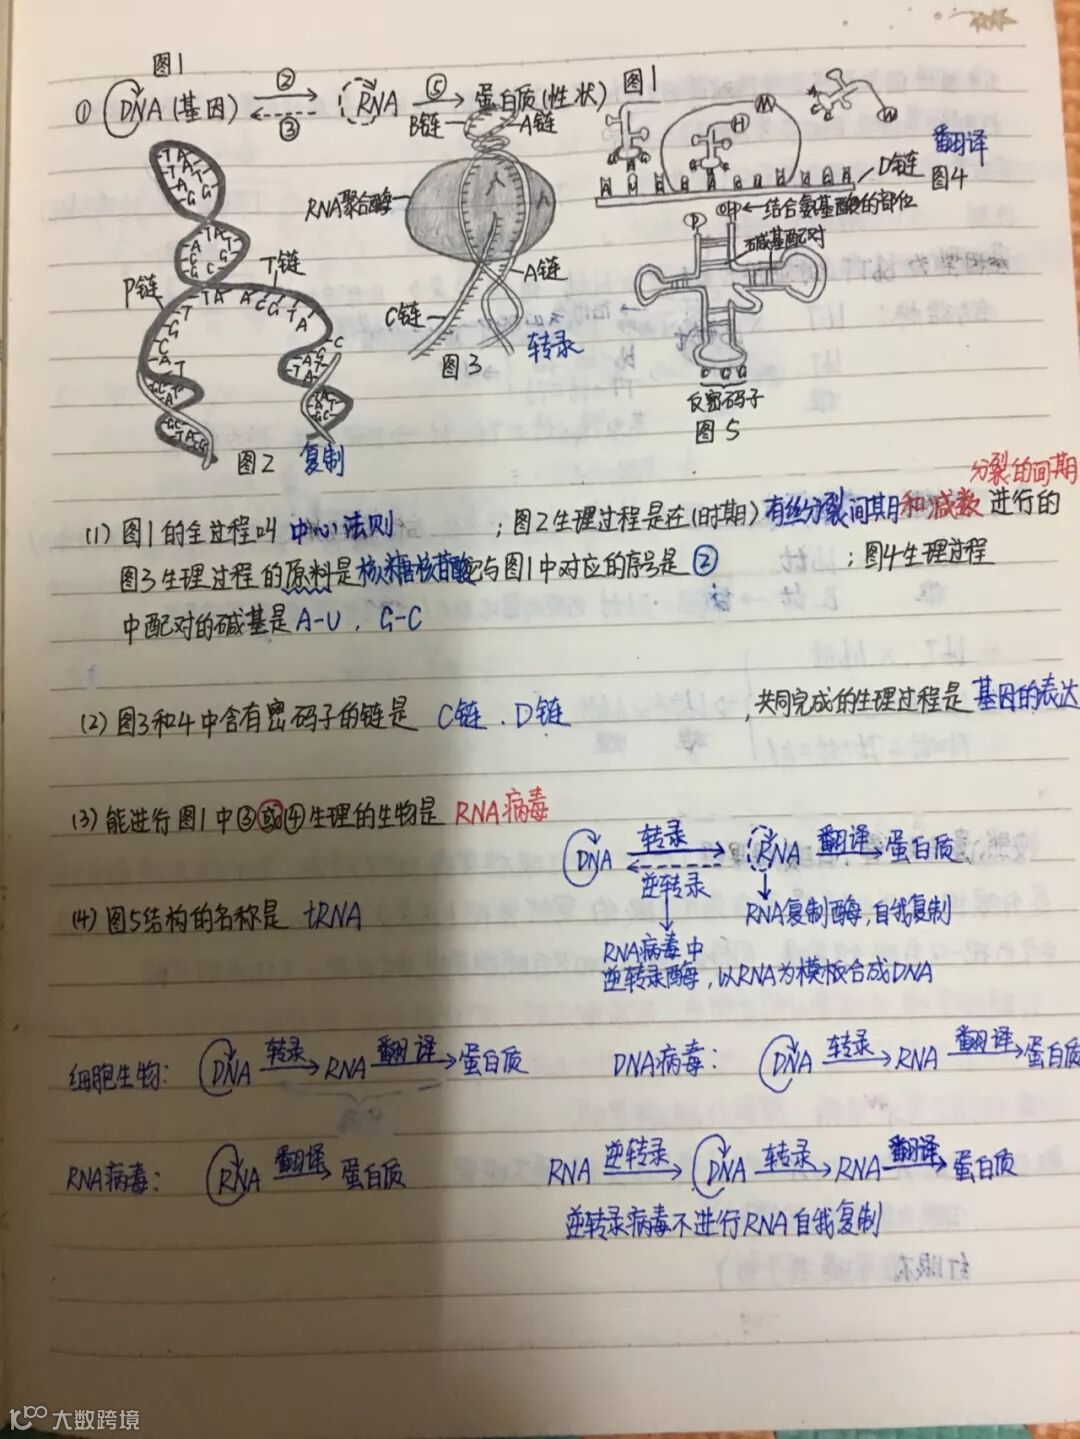 图1
① DNA(基因) ② ③ RNA ⑤ 蛋白质(性状)
图1
B链 A链
RNA聚合酶
A链
C链
图3 转录
P链 T链
图2 复制
M
H
D链
翻译
图4
P OH ←结合氨基酸的部位
碱基配对
反密码子
图5
分裂的间期
(1) 图1的全过程叫 中心法则 ; 图2生理过程是在(时期)有丝分裂间期和减数 进行的
图3生理过程的原料是核糖核苷酸 与图1中对应的序号是② ; 图4生理过程
中配对的碱基是 A-U, G-C
(2) 图3和4中含有密码子的链是 C链、D链 ,共同完成的生理过程是 基因的表达
(3) 能进行图1中③或④生理的生物是 RNA病毒
DNA 转录 逆转录 RNA 翻译 蛋白质
RNA复制酶,自我复制
(4) 图5结构的名称是 tRNA
RNA病毒中
逆转录酶,以RNA为模板合成DNA
细胞生物: DNA 转录 RNA 翻译 蛋白质
DNA病毒: DNA 转录 RNA 翻译 蛋白质
RNA病毒: RNA 翻译 蛋白质
RNA 逆转录 DNA 转录 RNA 翻译 蛋白质
逆转录病毒不进行RNA自我复制
大数跨境